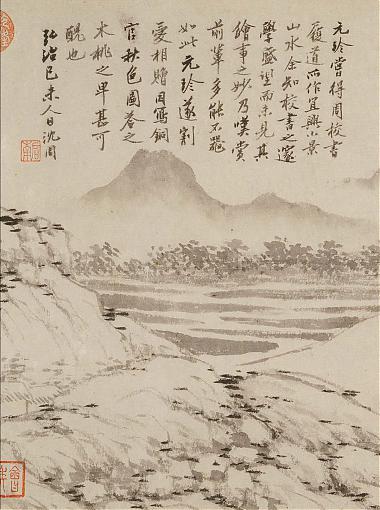 元玲嘗得周校書
履道所作宜興小景
山水余知校書之邃
學盛望而未見其
繪事之妙乃嘆賞
前輩多能不器
如此元玲遂割
愛相贈因寫銅
官秋色圖答之
木桃之卑甚可
醜也
弘治己未人日沈周